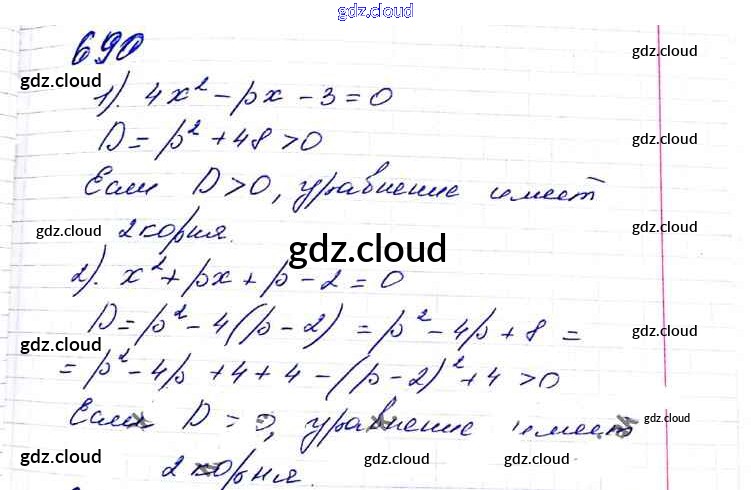 gdz.cloud
690
gdz.cloud
gdz.cloud
1). 4x² - px - 3 = 0
D = p² + 48 > 0
gdz.cloud
Если D > 0, уравнение имеет
gdz.cloud 2 корня. gdz.cloud
gdz.cloud
2). x² + px + p - 2 = 0
D = p² - 4(p - 2) = p² - 4p + 8 =
gdz.cloud
= p² - 4p + 4 + 4 - (p - 2)² + 4 > 0
Если D = 0, уравнение имеет
gdz.cloud
gdz.cloud 2 корня. gdz.cloud gdz.cloud